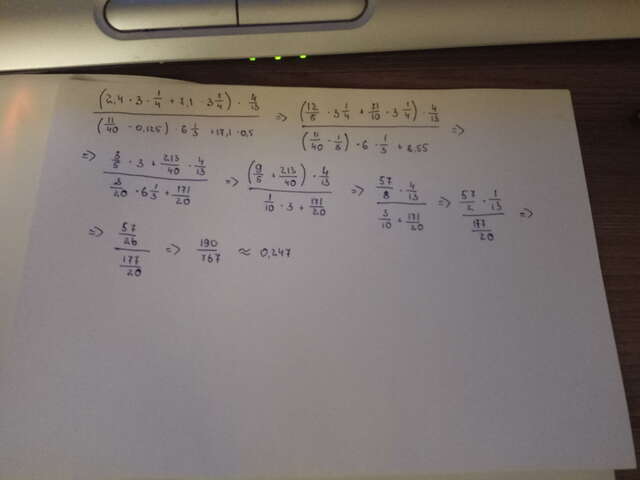 (2,4 · 3 · 1/4 + 7,1 · 3 1/4) · 4/13 / (11/40 - 0,125) · 6 1/3 + 17,1 · 0,5 => (12/5 · 3 1/4 + 71/10 · 3 1/4) · 4/13 / (11/40 - 1/8) · 6 · 1/3 + 8,55 =>
=> 3/5 · 3 + 213/40 · 4/13 / 3/20 · 6 1/3 + 171/20 => (9/5 + 213/40) · 4/13 / 1/10 · 3 + 171/20 => 57/8 · 4/13 / 3/10 + 171/20 => 57/2 · 1/13 / 177/20 =>
=> 57/26 / 177/20 => 190/767 ≈ 0,247